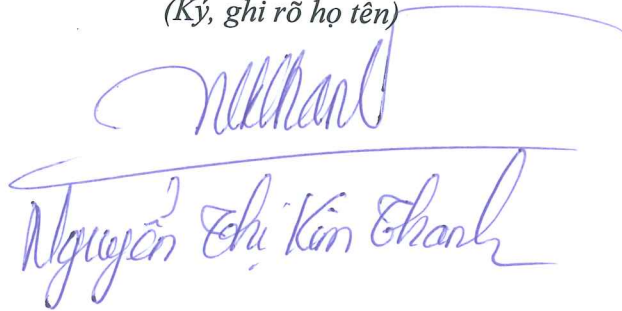 (Ký, ghi rõ họ tên)
Nguyễn Thị Kim Thanh